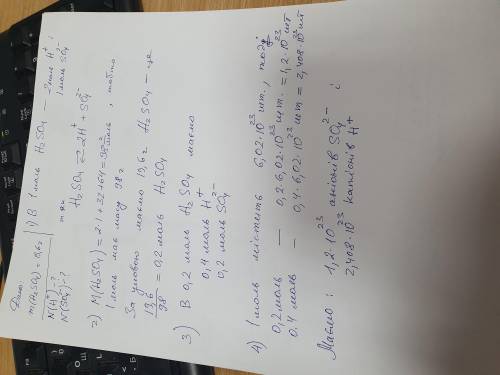 Дано:
m(H₂SO₄) = 19,6 г
N(H⁺) - ?
N(SO₄²⁻) - ?
1) В 1 моль H₂SO₄ — 2 моль H⁺ і
1 моль SO₄²⁻
H₂SO₄ ⇄ 2H⁺ + SO₄²⁻
2) M(H₂SO₄) = 2·1 + 32 + 64 = 98 г/моль, тобто
1 моль має масу 98 г
За умовою маємо 19,6 г H₂SO₄ — це
19,6 / 98 = 0,2 моль H₂SO₄
3) В 0,2 моль H₂SO₄ маємо
0,4 моль H⁺
0,2 моль SO₄²⁻
4) 1 моль містить 6,02·10²³ шт., тоді
0,2 моль — 0,2·6,02·10²³ шт. = 1,2·10²³ шт
0,4 моль — 0,4·6,02·10²³ шт = 2,408·10²³ шт
Маємо: 1,2·10²³ аніонів SO₄²⁻ і
2,408·10²³ катіонів H⁺